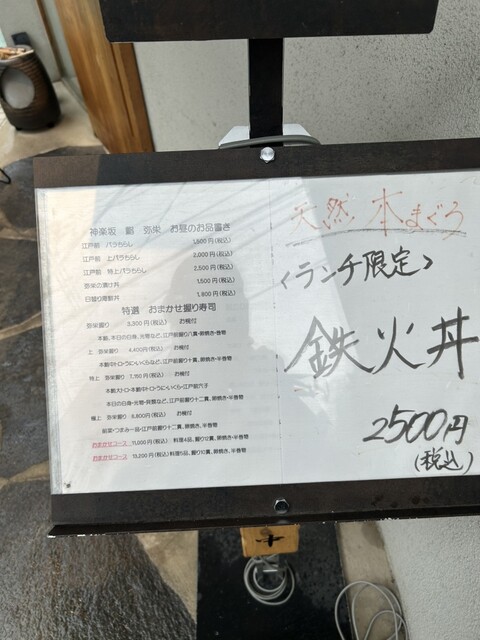 神楽坂 鮨 弥栄 お昼のお品書き
江戸前 バラちらし 1,500円(税込)
江戸前 上バラちらし 2,000円(税込)
江戸前 特上バラちらし 2,500円(税込)
弥栄の漬け丼 1,500円(税込)
日替り海鮮丼 1,800円(税込)
特選 おまかせ握り寿司
弥栄握り 3,300円(税込) お椀付
本鮪、本日の白身、光物など、江戸前握り八貫・卵焼き・巻物
上 弥栄握り 4,400円(税込) お椀付
本鮪中トロ・うに・いくらなど、江戸前握り十貫、卵焼き・半巻物
特上 弥栄握り 7,150円(税込) お椀付
本鮪大トロ・本鮪中トロ・うに・いくら・江戸前穴子
本日の白身・光物・貝類など、江戸前握り十二貫、卵焼き・半巻物
極上 弥栄握り 8,800円(税込) お椀付
前菜・つまみ一品・江戸前握り十二貫、卵焼き、半巻物
おまかせコース 11,000円(税込) 料理4品、握り12貫、卵焼き・半巻物
おまかせコース 13,200円(税込) 料理5品、握り10貫、卵焼き、半巻物
天然 本まぐろ
<ランチ限定>
鉄火丼
2500円
(税込)